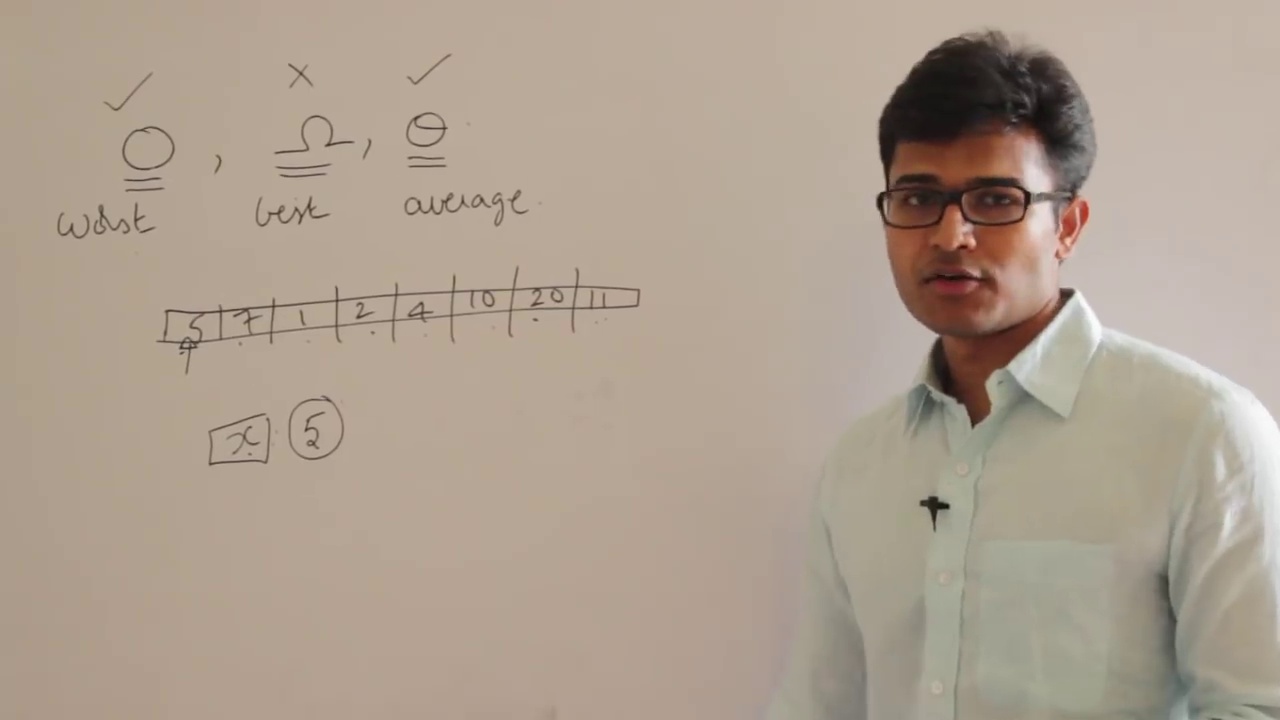 ✓ × ✓
O , Ω , Θ
worst best average
5 7 1 2 4 10 20 11
x 5